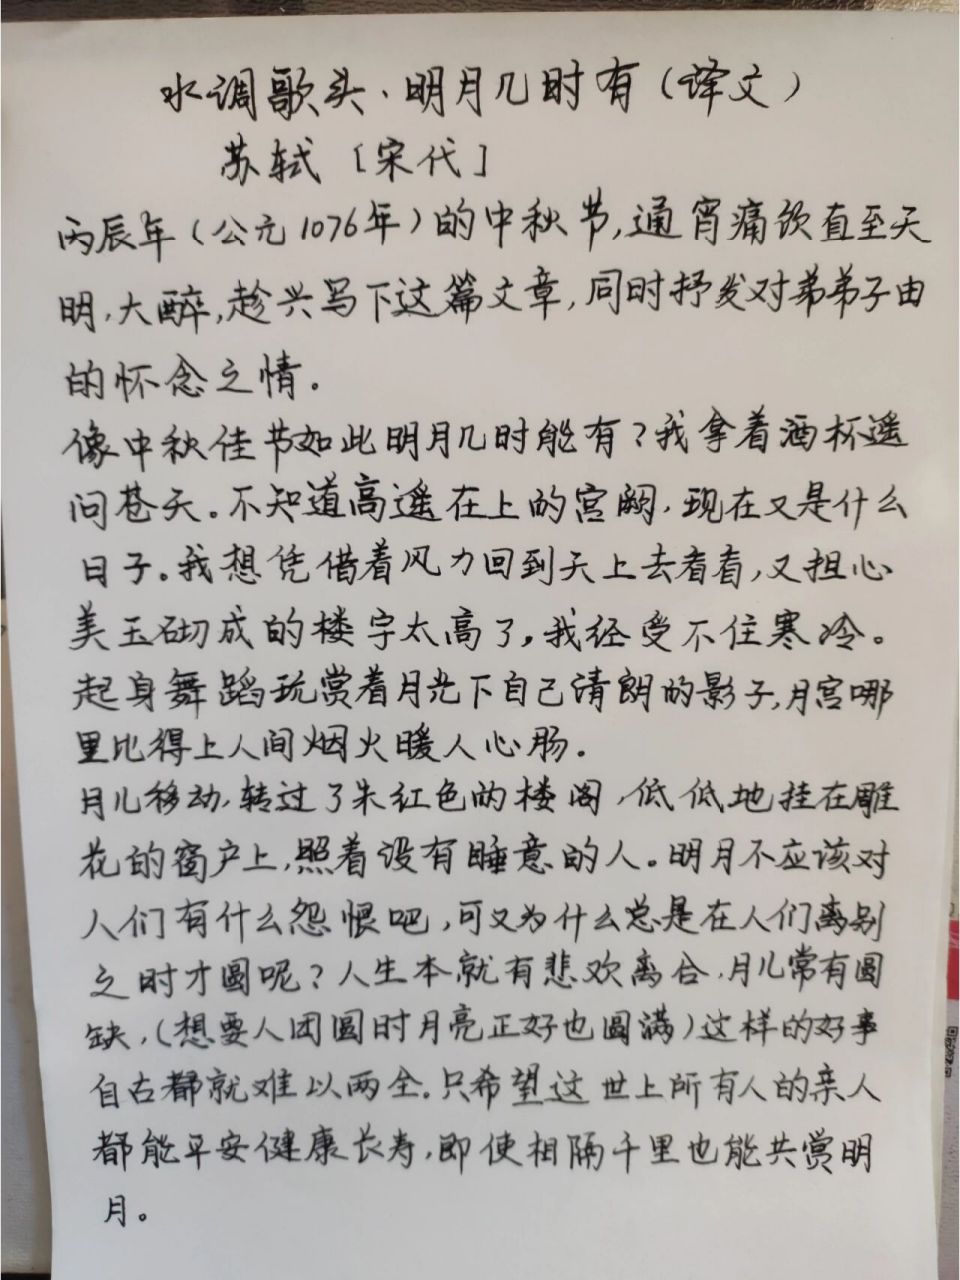 水调歌头·明月几时有（译文）
苏轼［宋代］
丙辰年（公元1076年）的中秋节，通宵痛饮直至天
明，大醉，趁兴写下这篇文章，同时抒发对弟弟子由
的怀念之情。
像中秋佳节如此明月几时能有？我拿着酒杯遥
问苍天。不知道高遥在上的宫阙，现在又是什么
日子。我想凭借着风力回到天上去看看，又担心
美玉砌成的楼宇太高了，我经受不住寒冷。
起身舞蹈玩赏着月光下自己清朗的影子，月宫哪
里比得上人间烟火暖人心肠。
月儿移动，转过了朱红色的楼阁，低低地挂在雕
花的窗户上，照着没有睡意的人。明月不应该对
人们有什么怨恨吧，可又为什么总是在人们离别
之时才圆呢？人生本就有悲欢离合，月儿常有圆
缺，（想要人团圆时月亮正好也圆满）这样的好事
自古都就难以两全。只希望这世上所有人的亲人
都能平安健康长寿，即使相隔千里也能共赏明
月。